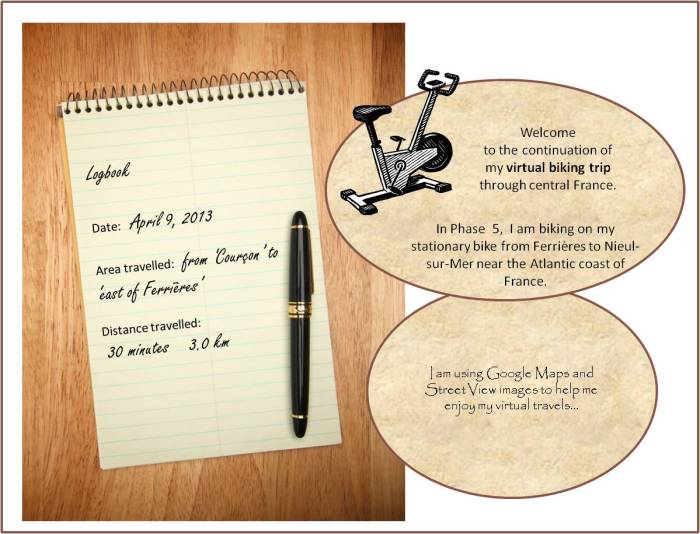 Logbook
Date: April 9, 2013
Area travelled: from 'Courçon' to
'east of Ferrières'
Distance travelled:
30 minutes 3.0 km
Welcome
to the continuation of
my virtual biking trip
through central France.
In Phase 5, I am biking on my
stationary bike from Ferrières to Nieul-
sur-Mer near the Atlantic coast of
France.
I am using Google Maps and
Street View images to help me
enjoy my virtual travels...